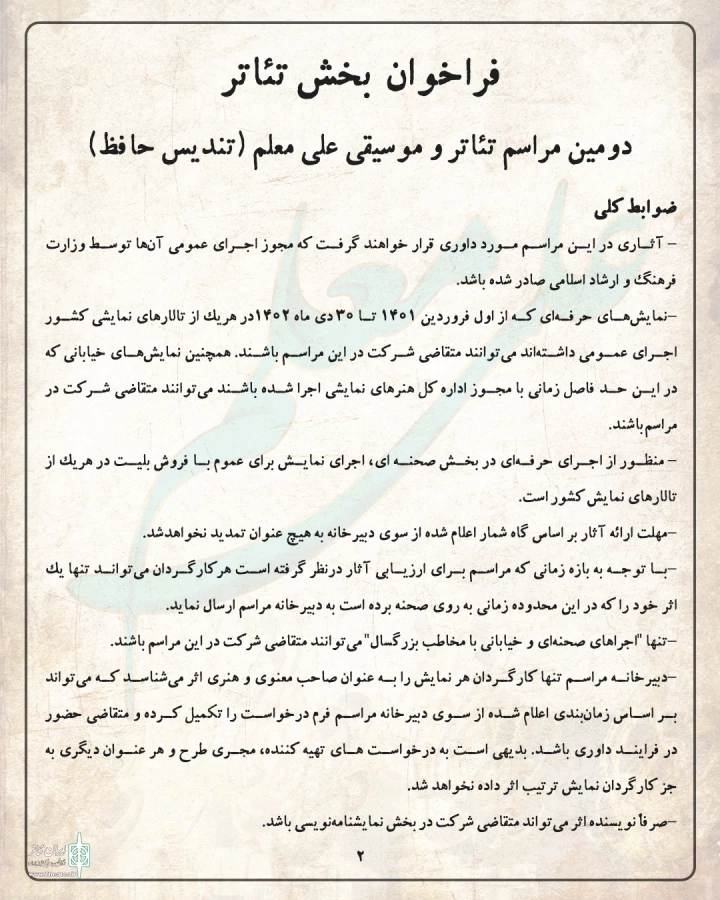 فراخوان بخش تئاتر
دومین مراسم تئاتر و موسیقی علی معلم (تندیس حافظ)
ضوابط کلی
– آثاری در این مراسم مورد داوری قرار خواهند گرفت که مجوز اجرای عمومی آن‌ها توسط وزارت
فرهنگ و ارشاد اسلامی صادر شده باشد.
–نمایش‌های حرفه‌ای که از اول فروردین ۱۴۰۱ تا ۳۰ دی ماه ۱۴۰۲در هریک از تالارهای نمایشی کشور
اجرای عمومی داشته‌اند می‌توانند متقاضی شرکت در این مراسم باشند. همچنین نمایش‌های خیابانی که
در این حد فاصل زمانی با مجوز اداره کل هنرهای نمایشی اجرا شده باشند می‌توانند متقاضی شرکت در
مراسم‌باشند.
– منظور از اجرای حرفه‌ای در بخش صحنه ای، اجرای نمایش برای عموم با فروش بلیت در هریک از
تالارهای نمایش کشور است.
–مهلت ارائه آثار بر اساس گاه شمار اعلام شده از سوی دبیرخانه به هیچ عنوان تمدید نخواهدشد.
–با توجه به بازه زمانی که مراسم برای ارزیابی آثار درنظر گرفته است هرکارگردان می‌تواند تنها یک
اثر خود را که در این محدوده زمانی به روی صحنه برده است به دبیرخانه مراسم ارسال نماید.
–تنها "اجراهای صحنه‌ای و خیابانی با مخاطب بزرگسال"می‌توانند متقاضی شرکت در این مراسم باشند.
–دبیرخانه مراسم تنها کارگردان هر نمایش را به عنوان صاحب معنوی و هنری اثر می‌شناسد که می‌تواند
بر اساس زمان‌بندی اعلام شده از سوی دبیرخانه مراسم فرم درخواست را تکمیل کرده و متقاضی حضور
در فرایند داوری باشد. بدیهی است به درخواست های تهیه کننده، مجری طرح و هر عنوان دیگری به
جز کارگردان نمایش ترتیب اثر داده نخواهد شد.
–صرفاً نویسنده اثر می‌تواند متقاضی شرکت در بخش نمایشنامه‌نویسی باشد.
۲